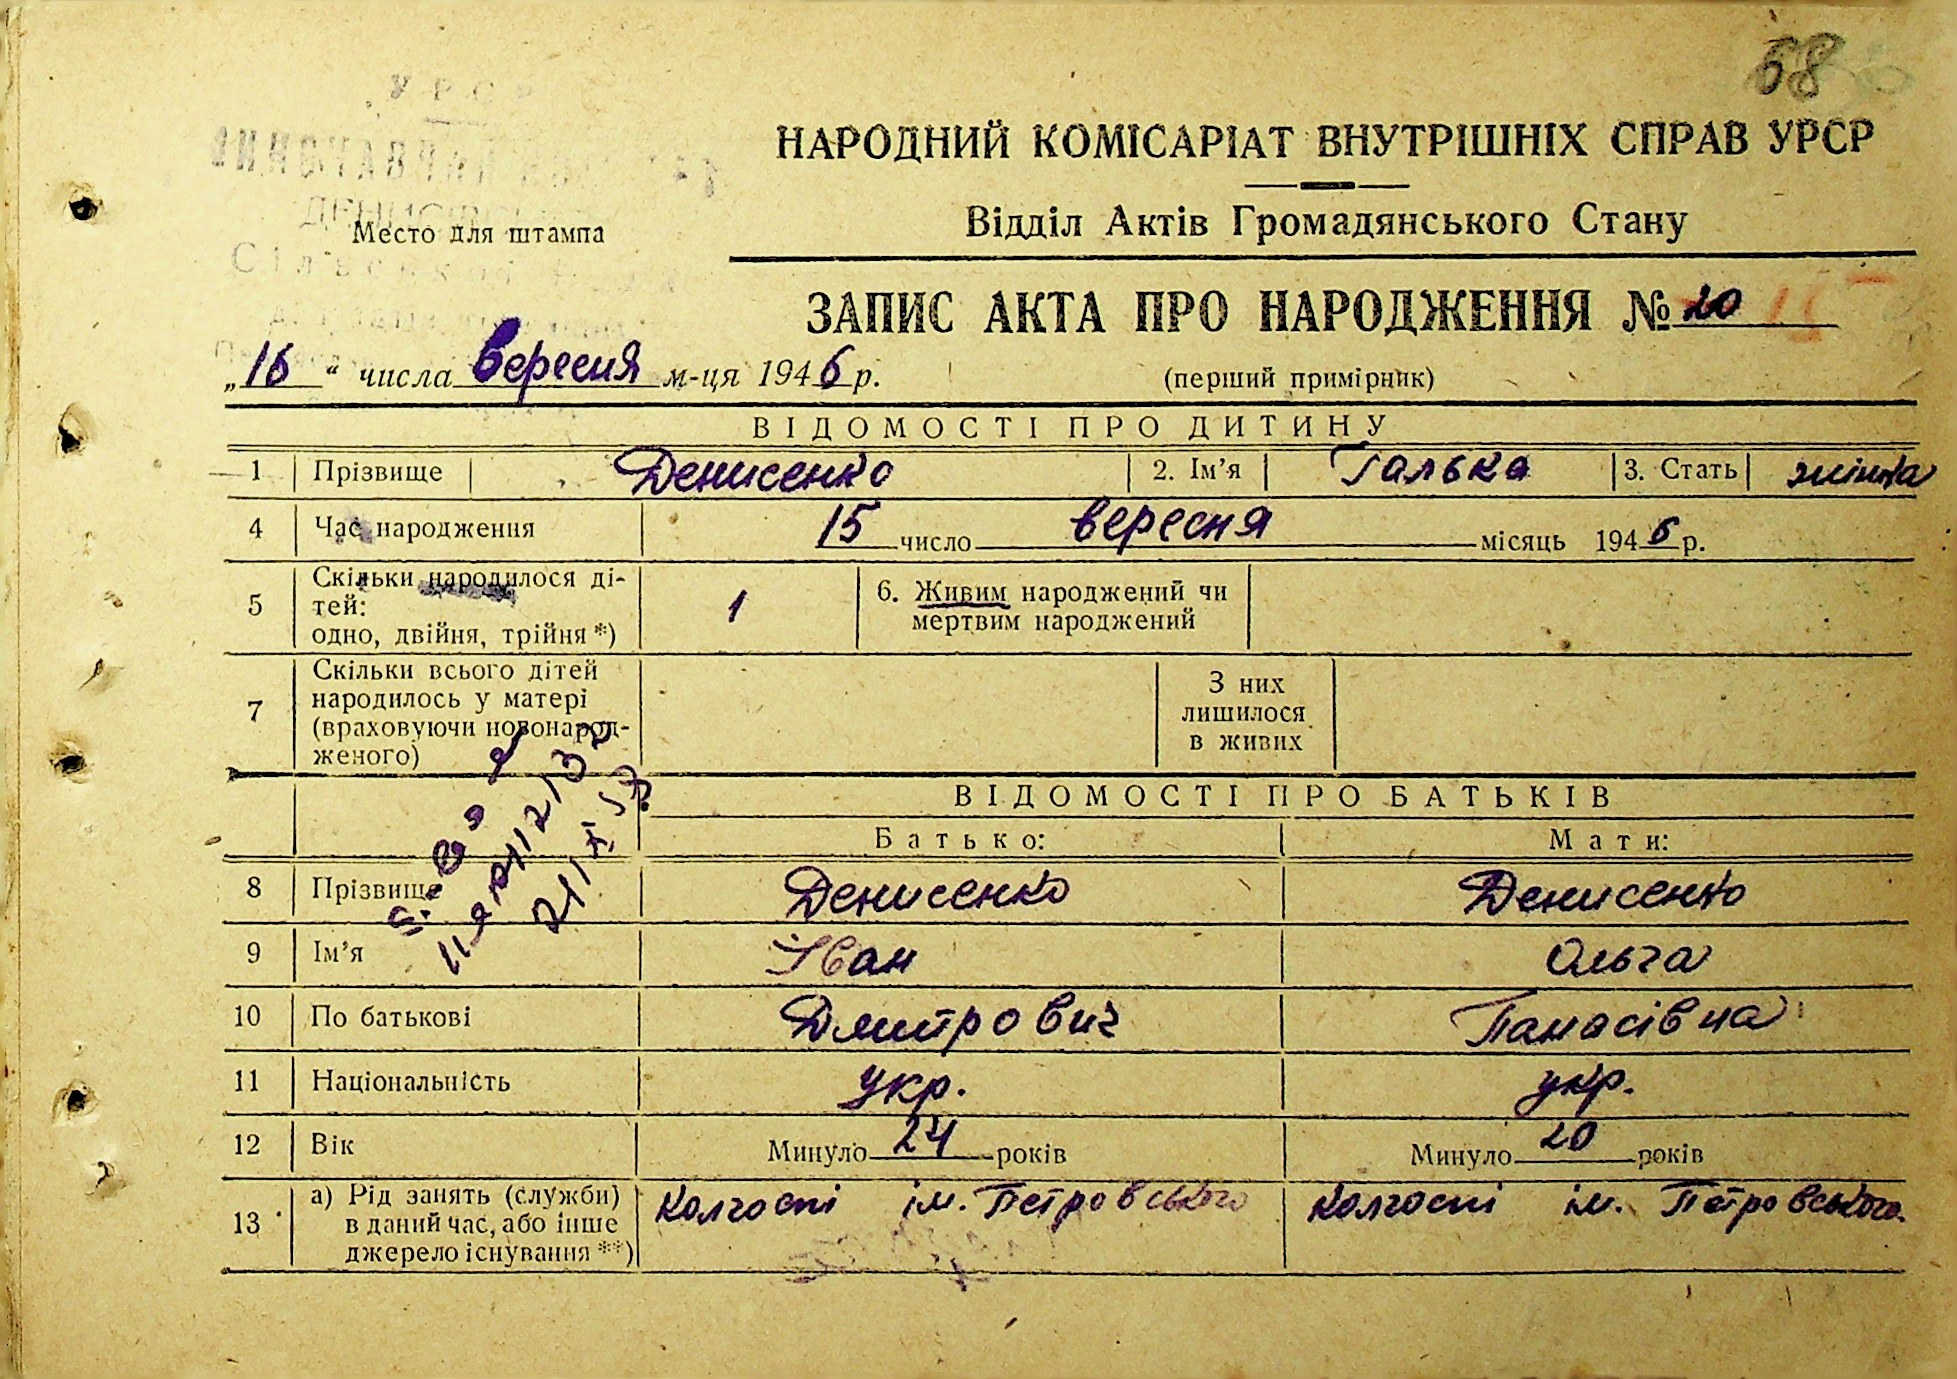 68
УРСР
НАРОДНИЙ КОМІСАРІАТ ВНУТРІШНІХ СПРАВ УРСР
Відділ Актів Громадянського Стану
Место для штампа
ЗАПИС АКТА ПРО НАРОДЖЕННЯ № 20
„16“ числа вересня м-ця 1946 р. (перший примірник)
ВІДОМОСТІ ПРО ДИТИНУ
1 Прізвище Денисенко 2. Ім’я Галька 3. Стать жінка
4 Час народження 15 число вересня місяць 1946 р.
5 Скільки народилося ді-
тей:
одно, двійня, трійня *) 1 6. Живим народжений чи
мертвим народжений
7 Скільки всього дітей
народилось у матері
(враховуючи новонарод-
женого) З них
лишилося
в живих
ВІДОМОСТІ ПРО БАТЬКІВ
Батько: Мати:
8 Прізвище Денисенко Денисенко
9 Ім’я Іван Ольга
10 По батькові Дмитрович Панасівна
11 Національність укр. укр.
12 Вік Минуло 24 років Минуло 20 років
13 а) Рід занять (служби)
в даний час, або інше
джерело існування **) Колгоспі ім. Петровського Колгоспі ім. Петровського.